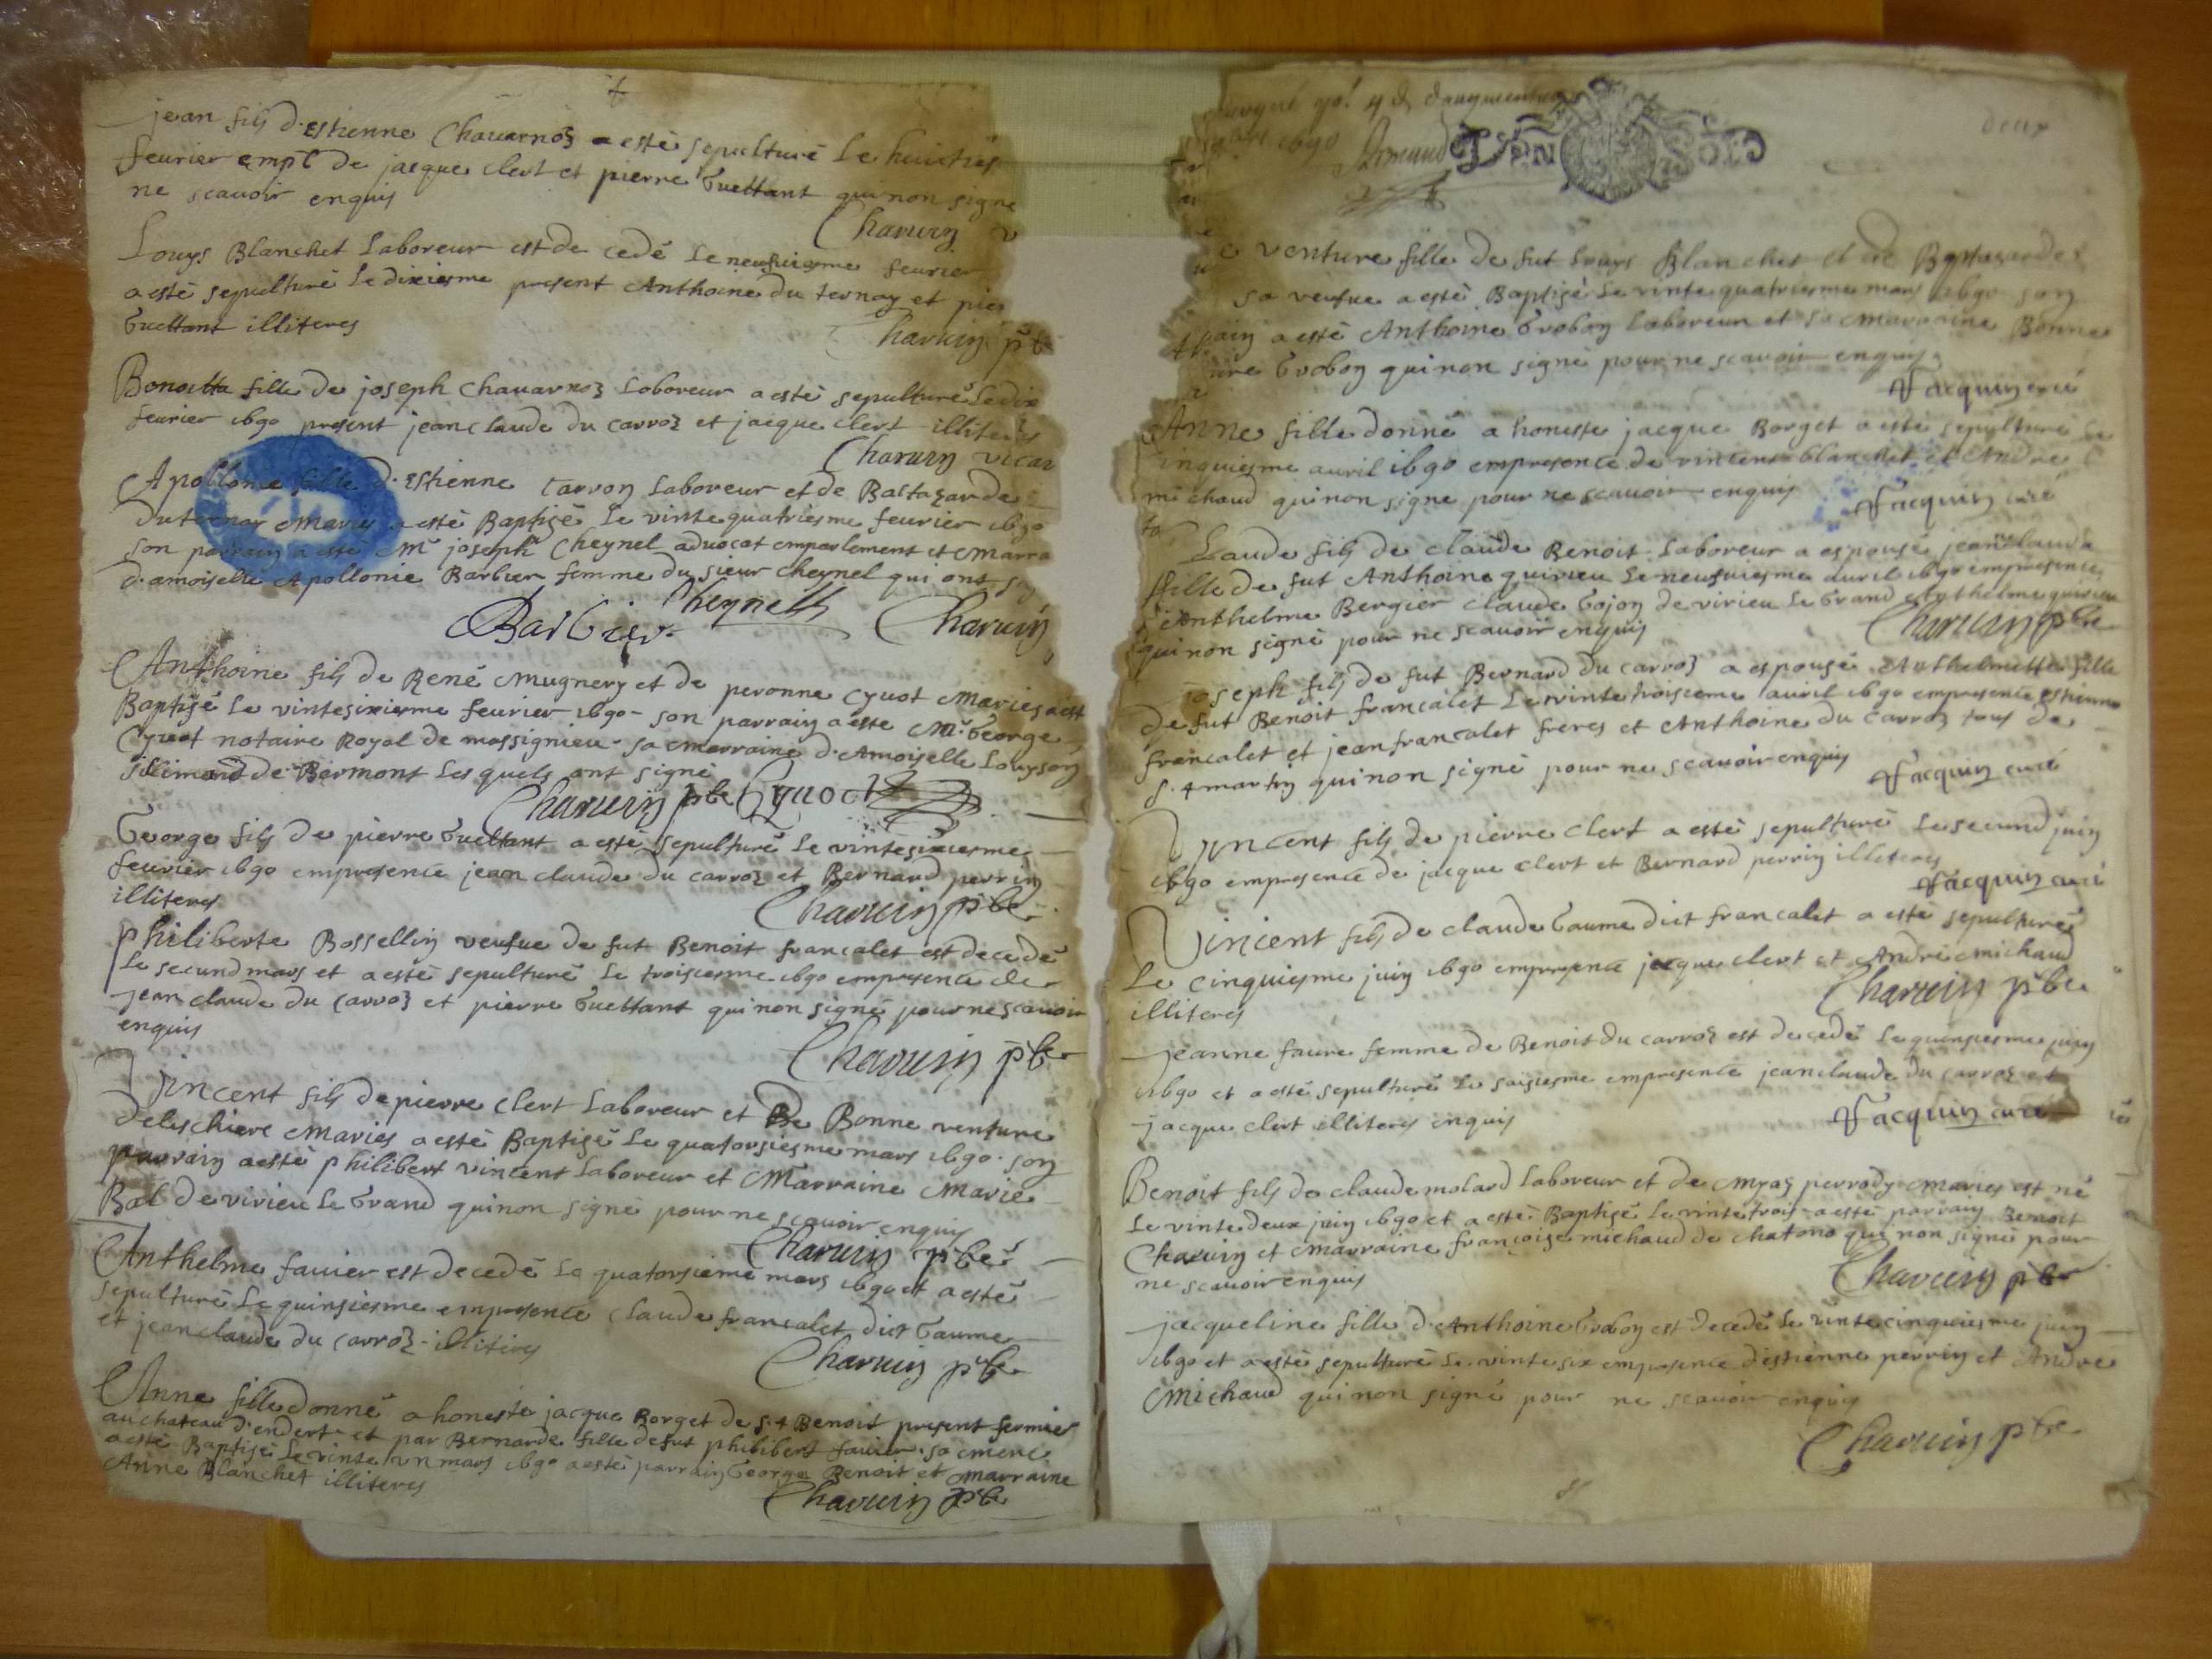 jean fils d'estienne Chavarnoz a esté sepulturé le huicties
feurier empt de jacque clert et pierre Guettant qui non signe
ne scauoir enquis
Charvin v
Louys Blanchet Laboreur est de cedé le neufuiesme feurier
a esté sepulturé le dixiesme present Anthoine du ternay et pier
Guettant illiteres
Charvin pb
Benoitta fille de joseph Chavarnoz Laboreur a esté sepulturé le dix
feurier 1690 present jean claude du carroz et jacque clert illiteres
Charvin vicar
Apollonie fille d'estienne Carron Laboreur et de Baltazarde
du ternay maries a esté Baptisé le vintequatriesme feurier 1690
son parrain a esté Mr joseph Cheynel aduocat emparlement et marra
d'amoiselle Apollonie Barbier femme du sieur cheynel qui ont sig
Barbier Cheynell Charvin
Anthoine fils de René Mugnery et de peronne Cyuot maries a est
Baptisé le vintesixiesme feurier 1690 - son parrain a esté Mr George
Cyuot notaire Royal de massignieu sa marraine d'Amoiselle Louyson
de Bermont les quels ont signé
Charvin pbr Cyuoct
George fils de pierre Guettant a esté sepulturé le vintesixiesme
feurier 1690 empresence jean claude du carroz et Bernard perrin
illiteres
Charvin pbr
philiberte Bossellin veufue de fut Benoit francalet est decedé
le second mars et a esté sepulturé le troisiesme 1690 empresence de
jean claude du Carroz et pierre Guettant qui non signé pour ne scauoir
enquis
Charvin pbr
Vincent fils de pierre Clert Laboreur et De Bonne venture
deleschiere maries a esté Baptisé le quatorsiesme mars 1690 son
parrain a esté philibert vincent Laboreur et Marraine Marie
Bal de virieu le Grand qui non signé pour ne scauoir enquis
Charvin pbr
Anthelme fauier est decedé le quatorsieme mars 1690 et a esté
sepulturé le quinsiesme empresence Claude francalet dict Gaume
et jean claude du Carroz - illiteres
Charvin pbr
Anne fille donné a honeste jacque Borget de St Benoit present fermier
au chateau d'endert et par Bernarde fille de fut philibert fauier sa mere
a esté Baptisé le vinte un mars 1690 a esté parrain George Benoit et marraine
Anne Blanchet illiteres
Charvin pbr
deux
1690 Armand
venture fille de fut Louys Blanchet et de Baltazarde
sa veufue a esté Baptisé le vinte quatriesme mars 1690 son
a esté Anthoine Grobon Laboreur et sa marraine Bonne
ure Grobon qui non signé pour ne scauoir enquis
Facquin curé
Anne fille donné a honeste jacque Borget a esté sepulturé le
inquiesme auril 1690 empresence de vincent blanchet et André
michaud qui non signe pour ne scauoir enquis
Facquin curé
Claude fils de claude Benoit Laboreur a espousé jeanclauda
fille de fut Anthoine quirieu le neufuiesme auril 1690 empresence
d'Anthelme Bergier claude Gojon de virieu le Grand et anthelme quirieu
qui non signé pour ne scauoir enquis
Charvin pbr
joseph fils de fut Bernard du carroz a espousé Anthelmette fille
de fut Benoit francalet le vinte troisieme auril 1690 empresence estienne
francalet et jean francalet freres et Anthoine du Carroz tous de
St martin qui non signé pour ne scauoir enquis
Facquin curé
Vincent fils de pierre Clert a esté sepulturé le second juin
1690 empresence de jacque clert et Bernard perrin illiteres
Facquin curé
Vincent fils de claude Gaume dict francalet a esté sepulturé
Le cinquiesme juin 1690 empresence jacque clert et André michaud
illiteres
Charvin pbr
jeanne faure femme de Benoit du carroz est decedé le quinsiesme juin
1690 et a esté sepulturé le saisiesme empresence jean claude du Carroz et
jacque clert illiteres enquis
Facquin curé
Benoit fils de claude molard Laboreur et de Myaz perrody maries est né
le vinte deux juin 1690 et a esté Baptisé le vinte trois a esté parrain Benoit
Charvin et marraine françoise michaud de chatono qui non signé pour
ne scauoir enquis
Charvin pbr
jacqueline fille d'Anthoine Grobon est decedé le vinte cinquiesme juin
1690 et a esté sepulturé le vinte six empresence d'estienne perrin et André
Michaud qui non signé pour ne scauoir enquis
Charvin pbr